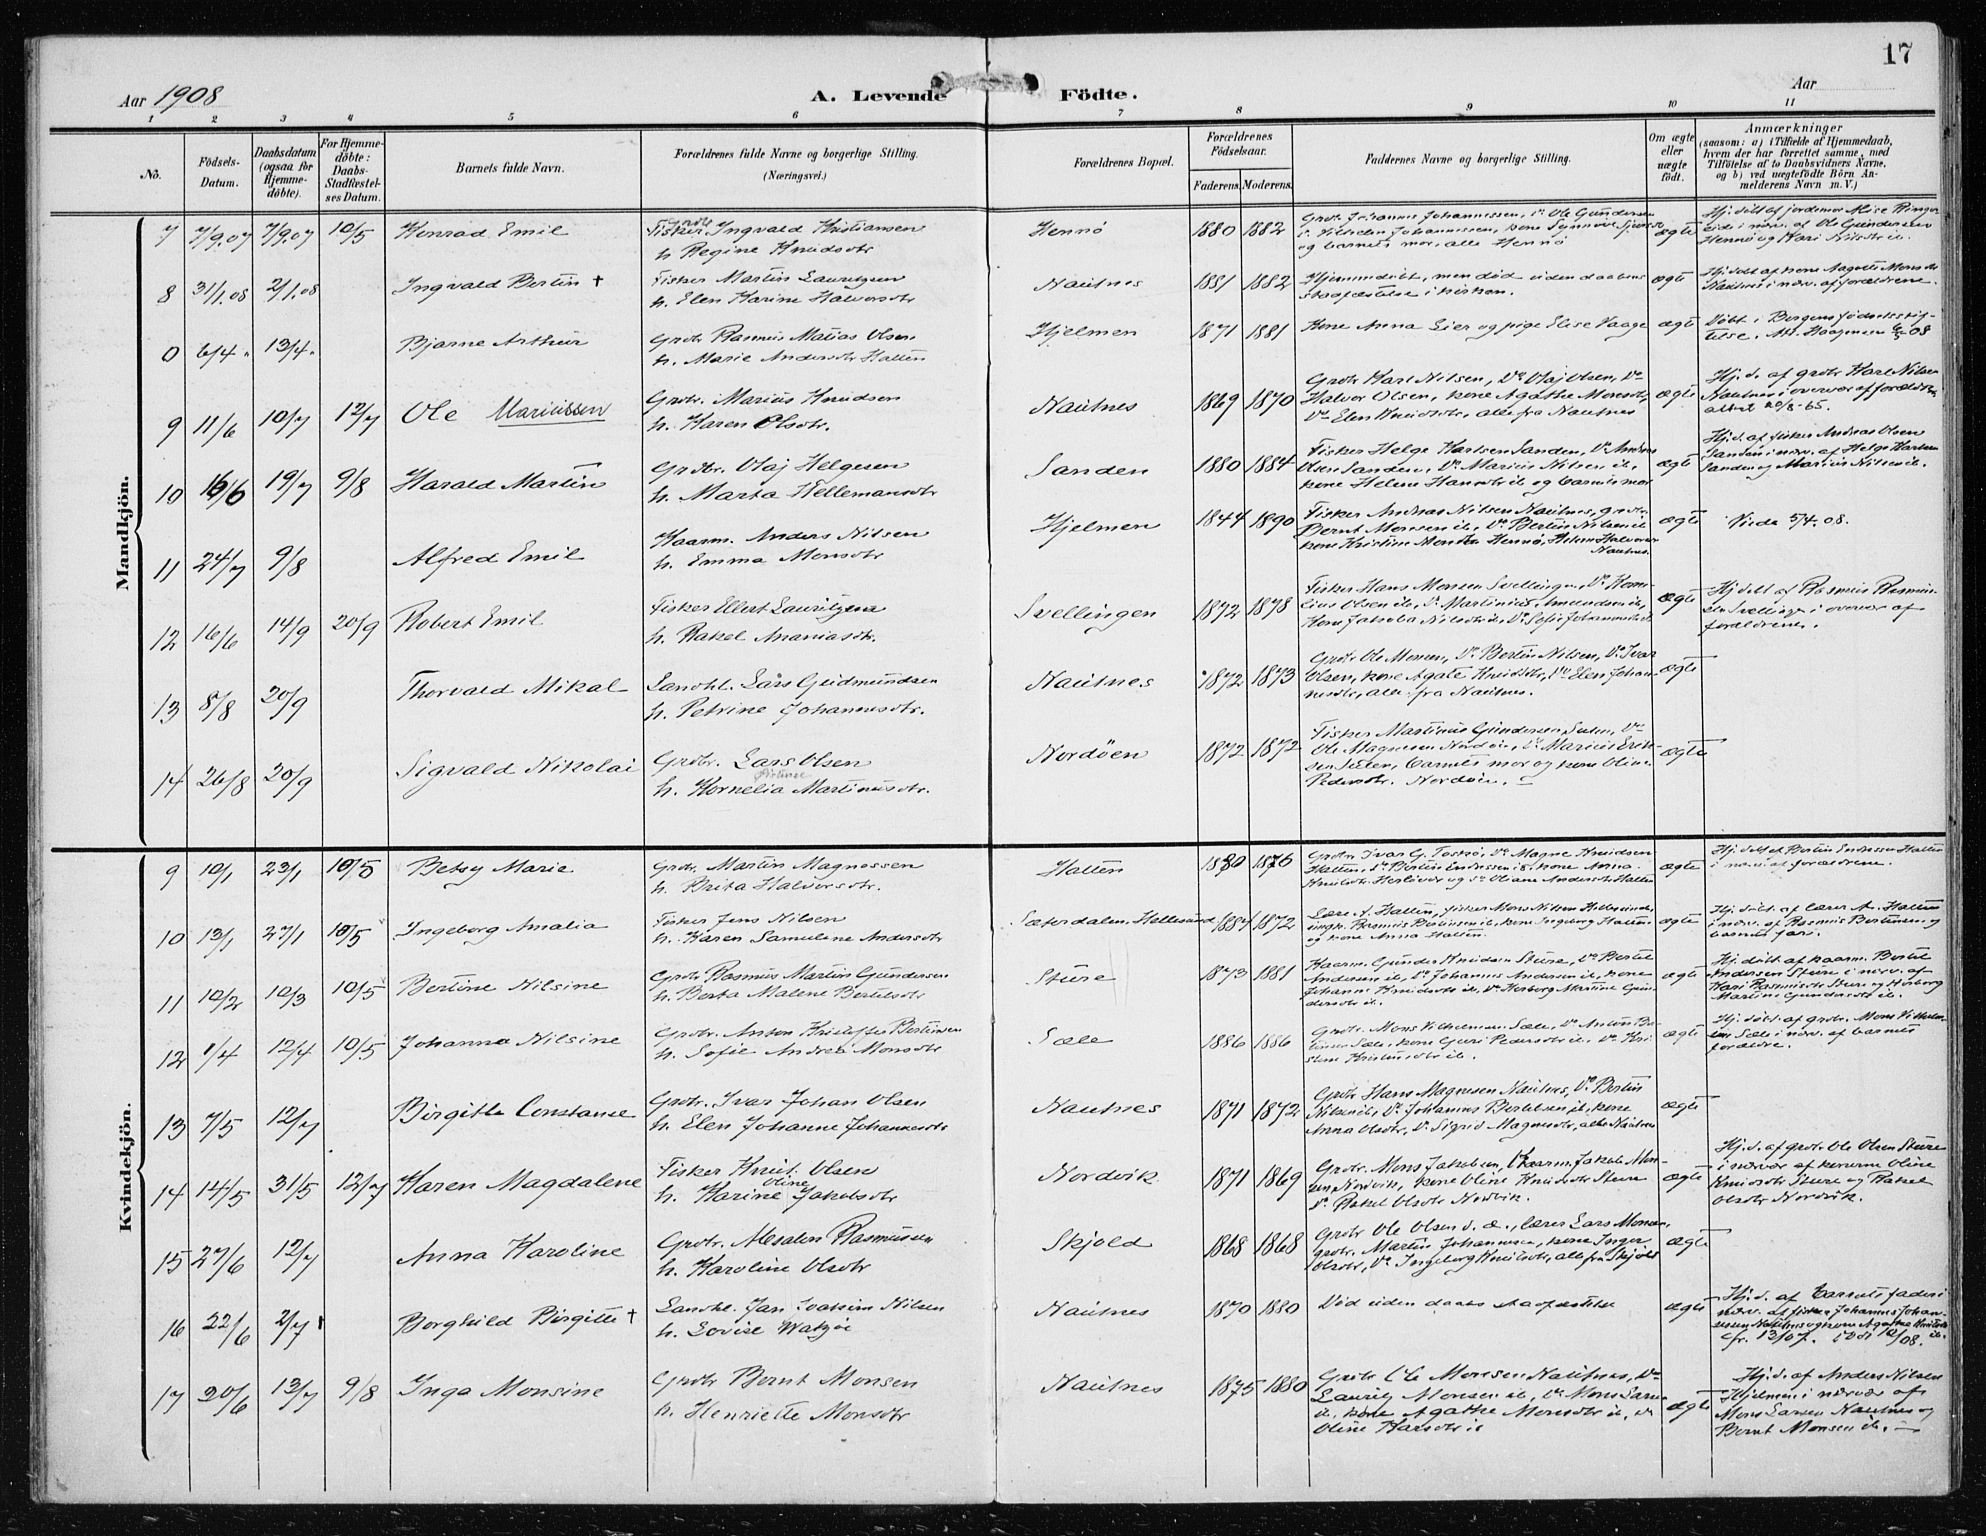 17
Aar 1908
A. Levende Födte.
Aar
1 2 3 4 5 6 7 8 9 10 11
No.
Födsels-Datum.
Daabsdatum (ogsaa for Hjemmedöbte).
For Hjemmedöbte: Daabs-Stadfæstelses Datum.
Barnets fulde Navn.
Forældrenes fulde Navne og borgerlige Stilling.
(Næringsvei.)
Forældrenes Bopæl.
Forældrenes Födselsaar.
Faderens. Moderens.
Faddernes Navne og borgerlige Stilling.
Om ægte eller uægte födt.
Anmærkninger
(saasom: a) i Tilfælde af Hjemmedaab, hvem der har forrettet samme, med Tilföielse af to Daabsvidners Navne, og b) ved uægtefödte Börn Anmelderens Navn m. V.)
Mandkjön.
7 7/9.07 7/9.07 10/5 Konrad Emil
Fisker Ingvald Kristiansen
h. Regine Knudsdtr
Hennö 1880 1882
og barnets mor, alle Hennö
ægte
8 31/1.08 2/1.08 Ingvald Bertin †
Fisker Martin Lauritzen
h. Elen Karine Halvorsdtr
Nautnes 1881 1882
Hjemmedöbt, men död inden daabens
stadfæstelse i kirken.
ægte
Nautnes i nærv. af forældrene.
0 6/4 13/4 Bjarne Arthur
Grdbr. Rasmus Matias Olsen
h. Marie Andersdtr Hatten
Hjelmen 1871 1881
Kone Anna Lier og pige Elise Vaage
ægte
Döbt i Bergens födselsstiftelse.
9 11/6 10/7 12/7 Ole Mariussen
Grdbr. Marius Knudsen
h. Karen Olsdtr.
Nautnes 1869 1870
Grdbr Karl Nilsen, Do Olaj Olsen, Do
Halvor Olsen, kone Agathe Monsdtr,
Do Elen Knudsdtr, alle fra Nautnes
ægte
Hj. d. af grdbr Karl Nilsen
Nautnes i overvær af forældrene
10 16/6 19/7 9/8 Harald Martin
Grdbr. Olaj Helgesen
h. Marta Tellemansdtr
Sanden 1880 1884
Fisker Helge Karlsen Sanden, Do Andreas
Olsen Sanden, Do Marius Nilsen ib,
kone Helene Hansdtr ib og barnets mor
ægte
Hj. d. af fisker Andreas Olsen
Sanden i nærv. af Helge Karlsen
Sanden og Marius Nilsen ib.
11 24/7 9/8 Alfred Emil
Kaarm. Anders Nilsen
h. Emma Monsdtr
Hjelmen 1844 1890
Fisker Andreas Nilsen Nautnes, grdbr.
Bernt Monsen ib, Do Bertin Nilsen ib
kone Kristine Monsdtr Hennö, Helene Halvorsdtr
Nautnes.
ægte
Viede 5/4-08.
12 16/6 14/9 20/9 Robert Emil
Fisker Ellert Lauritzen
h. Rakel Ananiasdtr.
Svellingen 1872 1878
Fisker Hans Monsen Svellingen, Do Kornelius
Olsen ib, Do Martinius Amundsen ib,
Kone Jakoba Nilsdtr ib, Do Sofie Johannesdtr ib
ægte
Hj. döbt af Rasmus Rasmussen
Svellingen i overvær af
forældrene.
13 8/8 20/9 Thorvald Mikal
Landhl. Lars Gudmundsen
h. Petrine Johannesdtr.
Nautnes 1872 1873
Grdbr. Ole Monsen, Do Bertin Nilsen, Do Ivar
Olsen, kone Agate Knudsdtr, Do Elen Johannesdtr,
alle fra Nautnes.
ægte
14 26/8 20/9 Sigvald Nikolai
Grdbr. Lars Olsen
h. Kornelia Martinusdtr.
Nordöen 1872 1872
Fisker Martinus Gundersen Sulen, Do
Ole Magnesen Nordöen, Do Marius Eriksen
Sulen, barnets mor og kone Oline
Pedersdtr. Nordöen.
ægte
Kvindekjön.
9 10/1 23/1 10/5 Betsy Marie
Grdbr. Martin Magnessen
h. Brita Halvorsdtr.
Hatten 1880 1876
ægte
Hj. döbt af Bertin Endresen Hatten
i nærv. af forældrene.
10 13/1 27/1 10/5 Ingeborg Amalia
Fisker Jens Nilsen
h. Karen Samuline Andersdtr
Sæterdalen, Hellesund 1884 1872
og kone Anna Hatten.
ægte
Hj. döbt af lærer A. Hatten
i nærv. af Rasmus Bertinsen og
barnets far.
11 10/2 10/3 10/5 Bertine Nilsine
Grdbr Rasmus Martin Gundersen
h. Berta Malene Bertelsdtr
Sture 1873 1881
Kaarm. Gunder Knudsen Sture, Do Bertel
Andersen ib, Do Johannes Andersen ib, kone
Johanne Knudsdtr ib, Do Herborg Martine Gundersdtr
ib.
ægte
Hj. döbt af kaarm. Bertel
Andersen Sture i nærv. af
Kari Rasmusdtr Sture og Herborg
Martine Gundersdtr ib.
12 1/4 12/4 10/5 Johanna Nilsine
Grdbr. Anton Kristoffer Bertinsen
h. Sofie Andrea Monsdtr
Sæle 1886 1886
ægte
Hj. döbt. af grdbr. Mons Vilhelmsen
Sæle i nærv. af barnets
forældre.
13 7/5 12/7 Birgitte Constanse
Grdbr. Ivar Johan Olsen
h. Elen Johanne Johannesdtr
Nautnes 1871 1872
Grdbr Hans Magnesen Nautnes, Do Bertin
Nilsen ib, Do Johannes Bertelsen ib, kone
Anna Olsdtr, Do Sigrid Magnesdtr, alle Nautnes
ægte
14 14/5 31/5 12/7 Karen Magdalene
Fisker Knut Olsen
Oline
h. Karine Jakobsdtr
Nordvik 1871 1869
Grdbr. Mons Jakobsen, Kaarm. Jakob Monsen
Nordvik, kone Oline Knudsdtr Sture
Do Rakel Olsdtr Nordvik.
ægte
Hj. d. af grdbr Ole Olsen Sture
i nærvær af konerne Oline
Knudsdtr Sture og Rakel
Olsdtr Nordvik.
15 27/6 12/7 Anna Karoline
Grdbr. Absalon Rasmussen
h. Karoline Olsdtr
Skjold 1868 1868
Grdbr Ole Olsen d. æ., lærer Lars Monsen,
grdbr. Martin Johannesen, kone Inger
Olsdtr, Do Ingeborg Knudsdtr, alle fra Skjold
ægte
16 22/6 2/7 Borghild Birgitte †
Landhl. Jan Joakim Nilsen
h. Lovise Watzöe
Nautnes 1870 1880
Död uden daabs stadfæstelse
ægte
Hj. d. af barnets fader i
nærv. af fisker Johannes Johannessen
Nautnes og kone Agathe Knudsdtr ib.
17 20/6 13/7 9/8 Inga Monsine
Grdbr Bernt Monsen
h. Henriette Monsdtr
Nautnes 1875 1880
Grdbr Ole Monsen Nautnes, Do
Lauritz Monsen ib, Do Mons Larsen
ib, kone Agathe Monsdtr ib, Do
Oline Larsdtr ib
ægte
Hj. d. af Anders Nilsen
Hjelmen i nærvær af
Mons Larsen Nautnes og
Bernt Monsen ib.